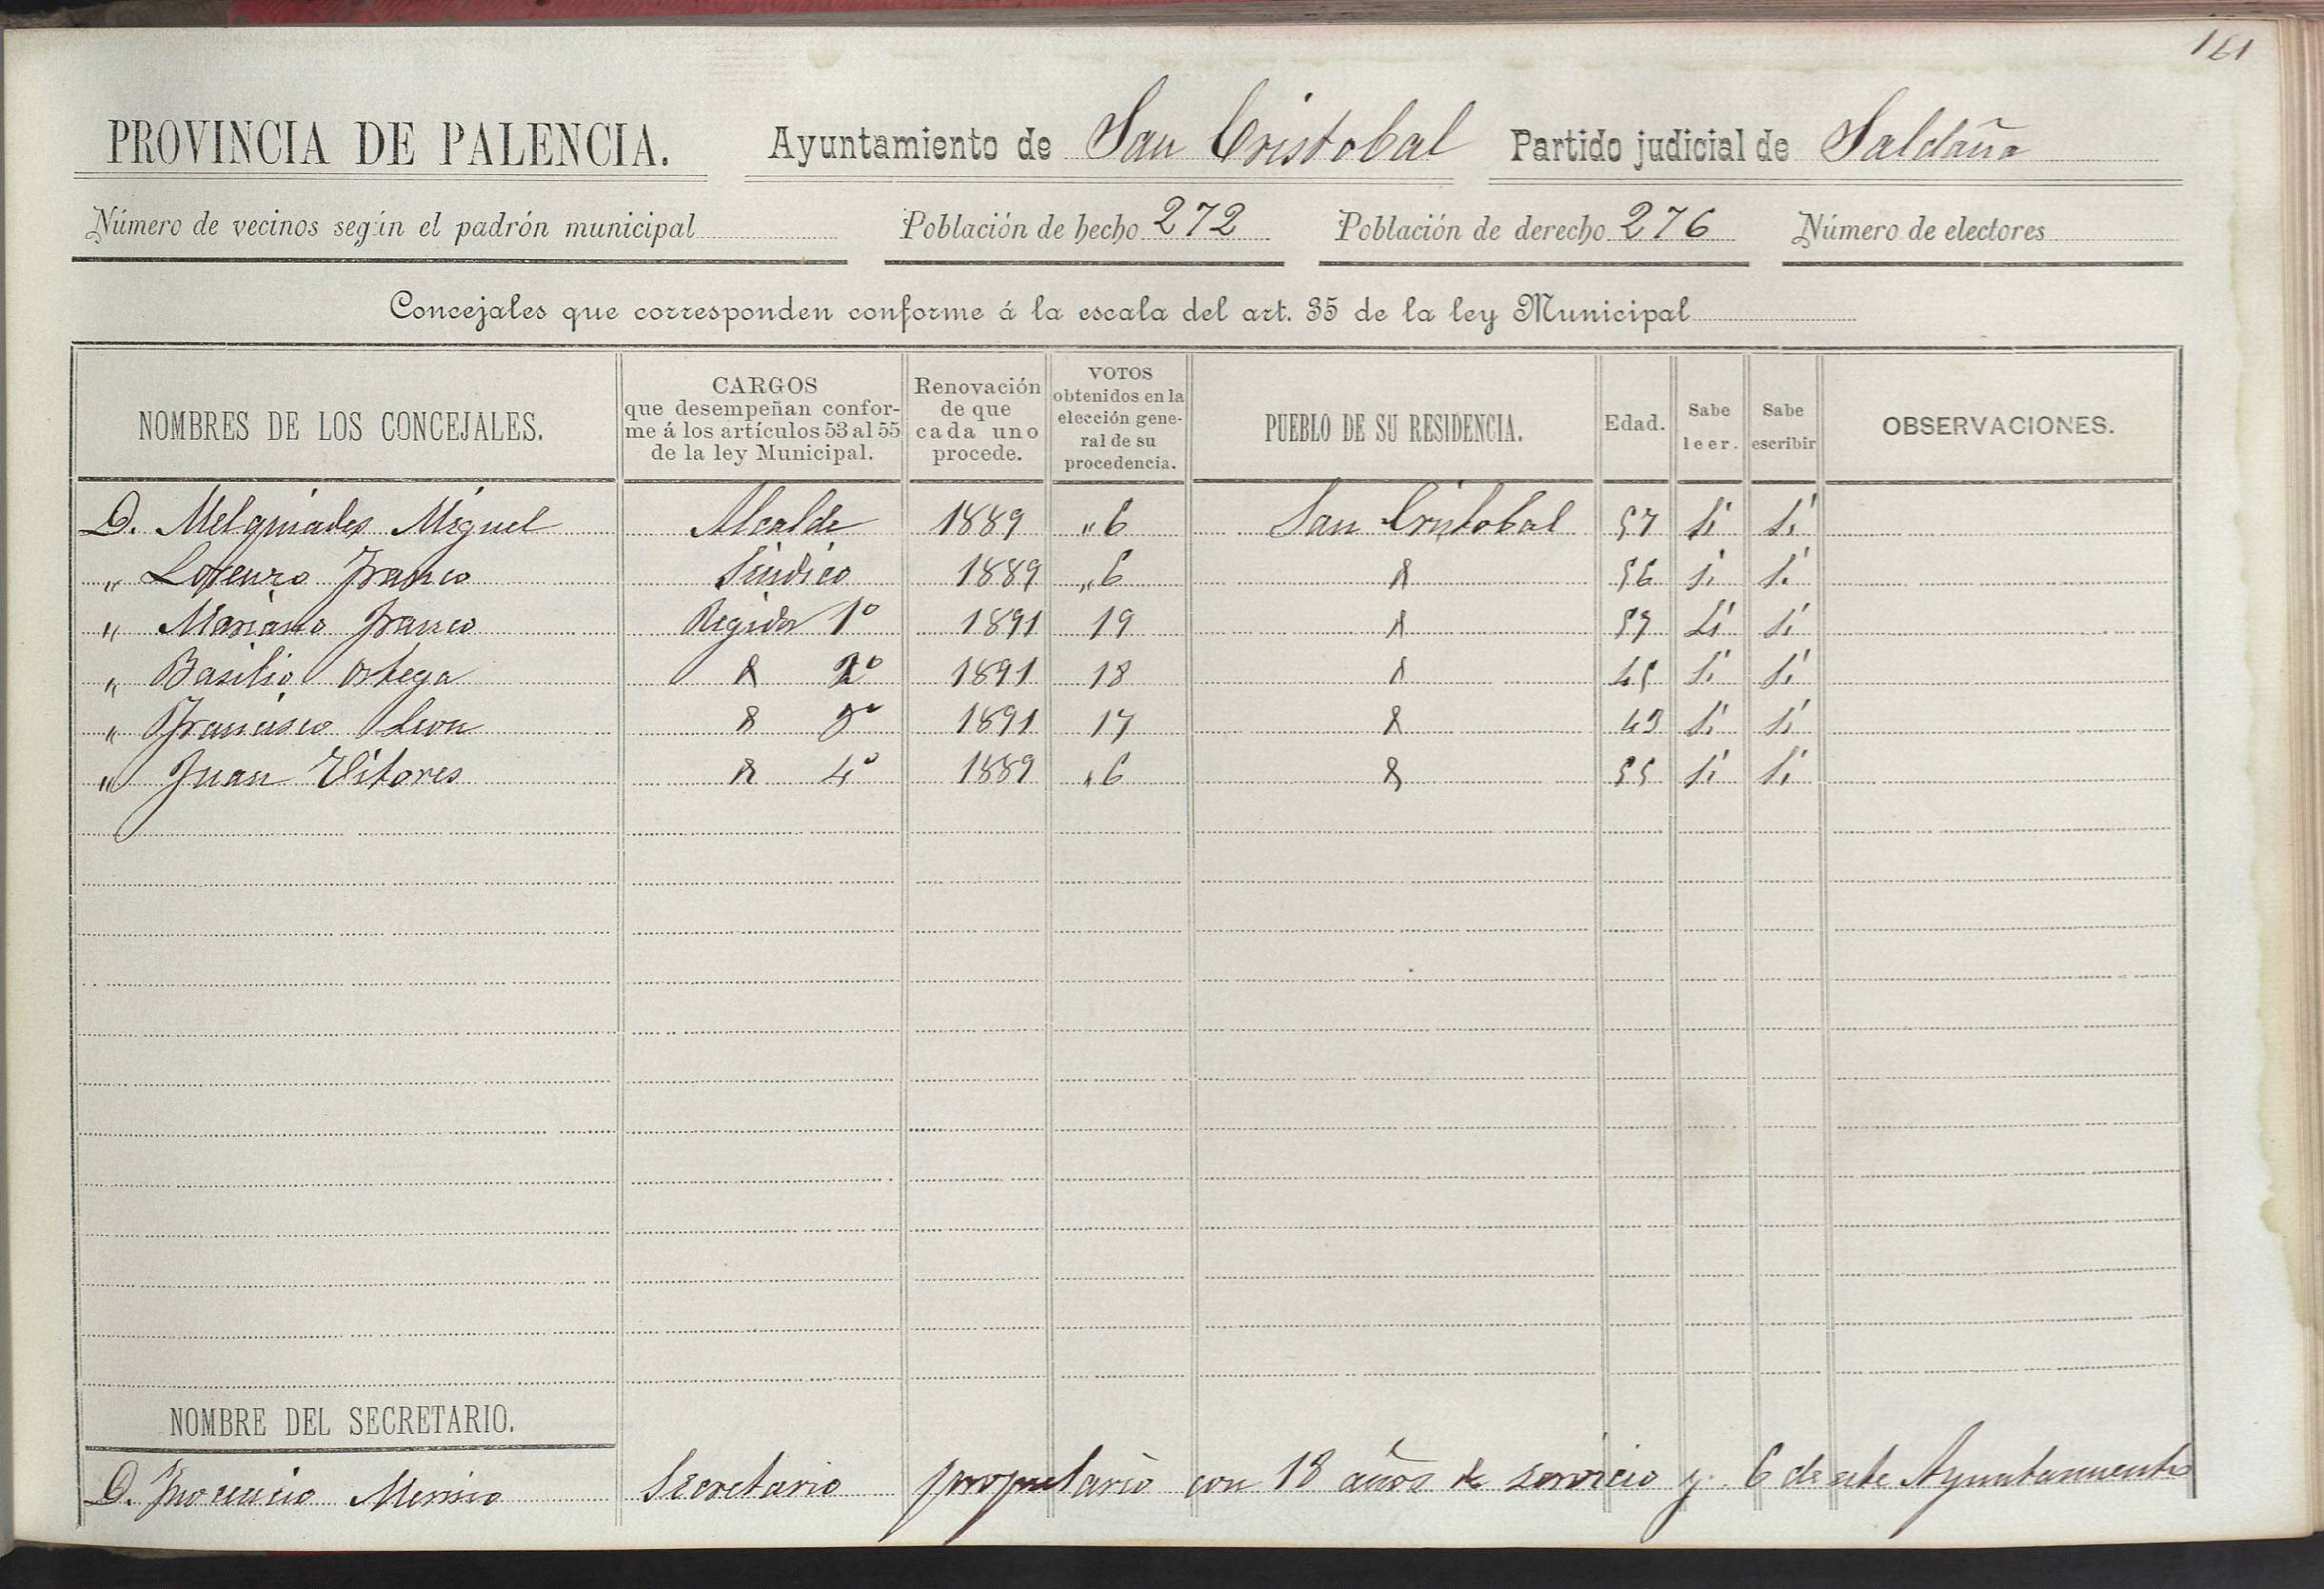 161
PROVINCIA DE PALENCIA. Ayuntamiento de San Cristobal Partido judicial de Saldaña
Número de vecinos según el padrón municipal Población de hecho 272 Población de derecho 276 Número de electores
Concejales que corresponden conforme á la escala del art. 35 de la ley Municipal
NOMBRES DE LOS CONCEJALES. CARGOS que desempeñan conforme á los artículos 53 al 55 de la ley Municipal. Renovación de que cada uno procede. VOTOS obtenidos en la elección general de su procedencia. PUEBLO DE SU RESIDENCIA. Edad. Sabe leer. Sabe escribir OBSERVACIONES.
D. Melquiades Miguel Alcalde 1889 " 6 San Cristobal 57 Si Si
" Lorenzo Franco Sindico 1889 " 6 & 56 Si Si
" Mariano Franco Regidor 1º 1891 19 & 59 Si Si
" Basilio Ortega & 2º 1891 18 & 45 Si Si
" Francisco Leon & 3º 1891 17 & 43 Si Si
" Juan Vitores & 4º 1889 " 6 & 55 Si Si
NOMBRE DEL SECRETARIO.
D. Inocencio Merino Secretario propietario con 18 años de servicio y 6 de este Ayuntamiento